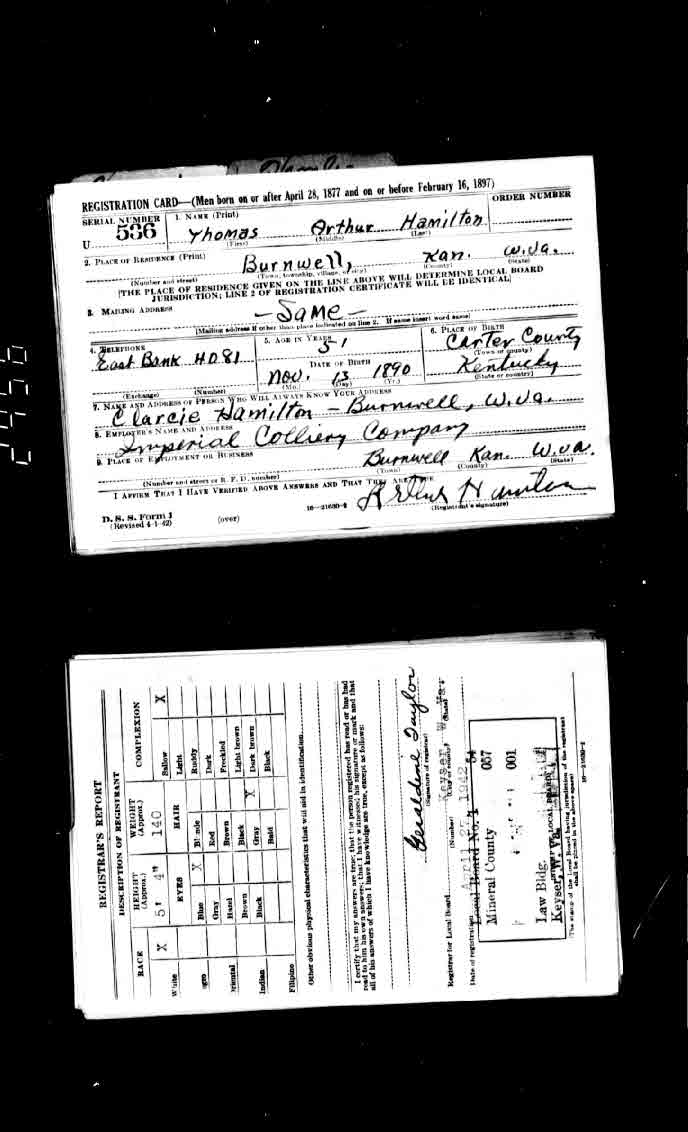 REGISTRATION CARD—(Men born on or after April 28, 1877 and on or before February 16, 1897)
SERIAL NUMBER 1. NAME (Print) ORDER NUMBER
U 586 Thomas Arthur Hamilton
(First) (Middle) (Last)
2. PLACE OF RESIDENCE (Print)
Burnwell, Kan. W.Va.
(Number and street) (Town, township, village, or city) (County) (State)
[THE PLACE OF RESIDENCE GIVEN ON THE LINE ABOVE WILL DETERMINE LOCAL BOARD
JURISDICTION; LINE 2 OF REGISTRATION CERTIFICATE WILL BE IDENTICAL]
3. MAILING ADDRESS
— Same —
[Mailing address if other than place indicated on line 2. If same insert word same]
4. TELEPHONE 5. AGE IN YEARS 6. PLACE OF BIRTH
East Bank 4081 51 Carter County
(Town or county)
DATE OF BIRTH
Nov. 13 1890 Kentucky
(Exchange) (Number) (Mo.) (Day) (Yr.) (State or country)
7. NAME AND ADDRESS OF PERSON WHO WILL ALWAYS KNOW YOUR ADDRESS
Clarcie Hamilton — Burnwell, W.Va.
8. EMPLOYER'S NAME AND ADDRESS
Imperial Colliery Company
9. PLACE OF EMPLOYMENT OR BUSINESS
Burnwell Kan. W.Va.
(Number and street or R. F. D. number) (Town) (County) (State)
I AFFIRM THAT I HAVE VERIFIED ABOVE ANSWERS AND THAT THEY ARE TRUE.
Arthur Hamilton
D. S. S. Form 1
(Revised 4-1-42) (over) 16—21630-2 (Registrant's signature)
REGISTRAR'S REPORT
DESCRIPTION OF REGISTRANT
RACE HEIGHT (Approx.) WEIGHT (Approx.) COMPLEXION
White X 5' 4" 140 Sallow X
EYES HAIR Light
Negro Blue X Blonde Ruddy
Gray Red Dark
Oriental Hazel Brown Freckled
Brown Black Light brown
Indian Black Gray X Dark brown
Bald Black
Filipino
Other obvious physical characteristics that will aid in identification
I certify that my answers are true; that the person registered has read or has had
read to him his own answers; that I have witnessed his signature or mark and that
all of his answers of which I have knowledge are true, except as follows:
Geraldine Taylor
(Signature of registrar)
Registrar for Local Board Keyser W. Va.
(Number) (City or county) (State)
Date of registration April 1942
Local Board No. 54
Mineral County 057
001
Law Bldg.
Keyser, W. Va.
(The stamp of the Local Board having jurisdiction of the registrant
shall be placed in the above space)
16—21630-2